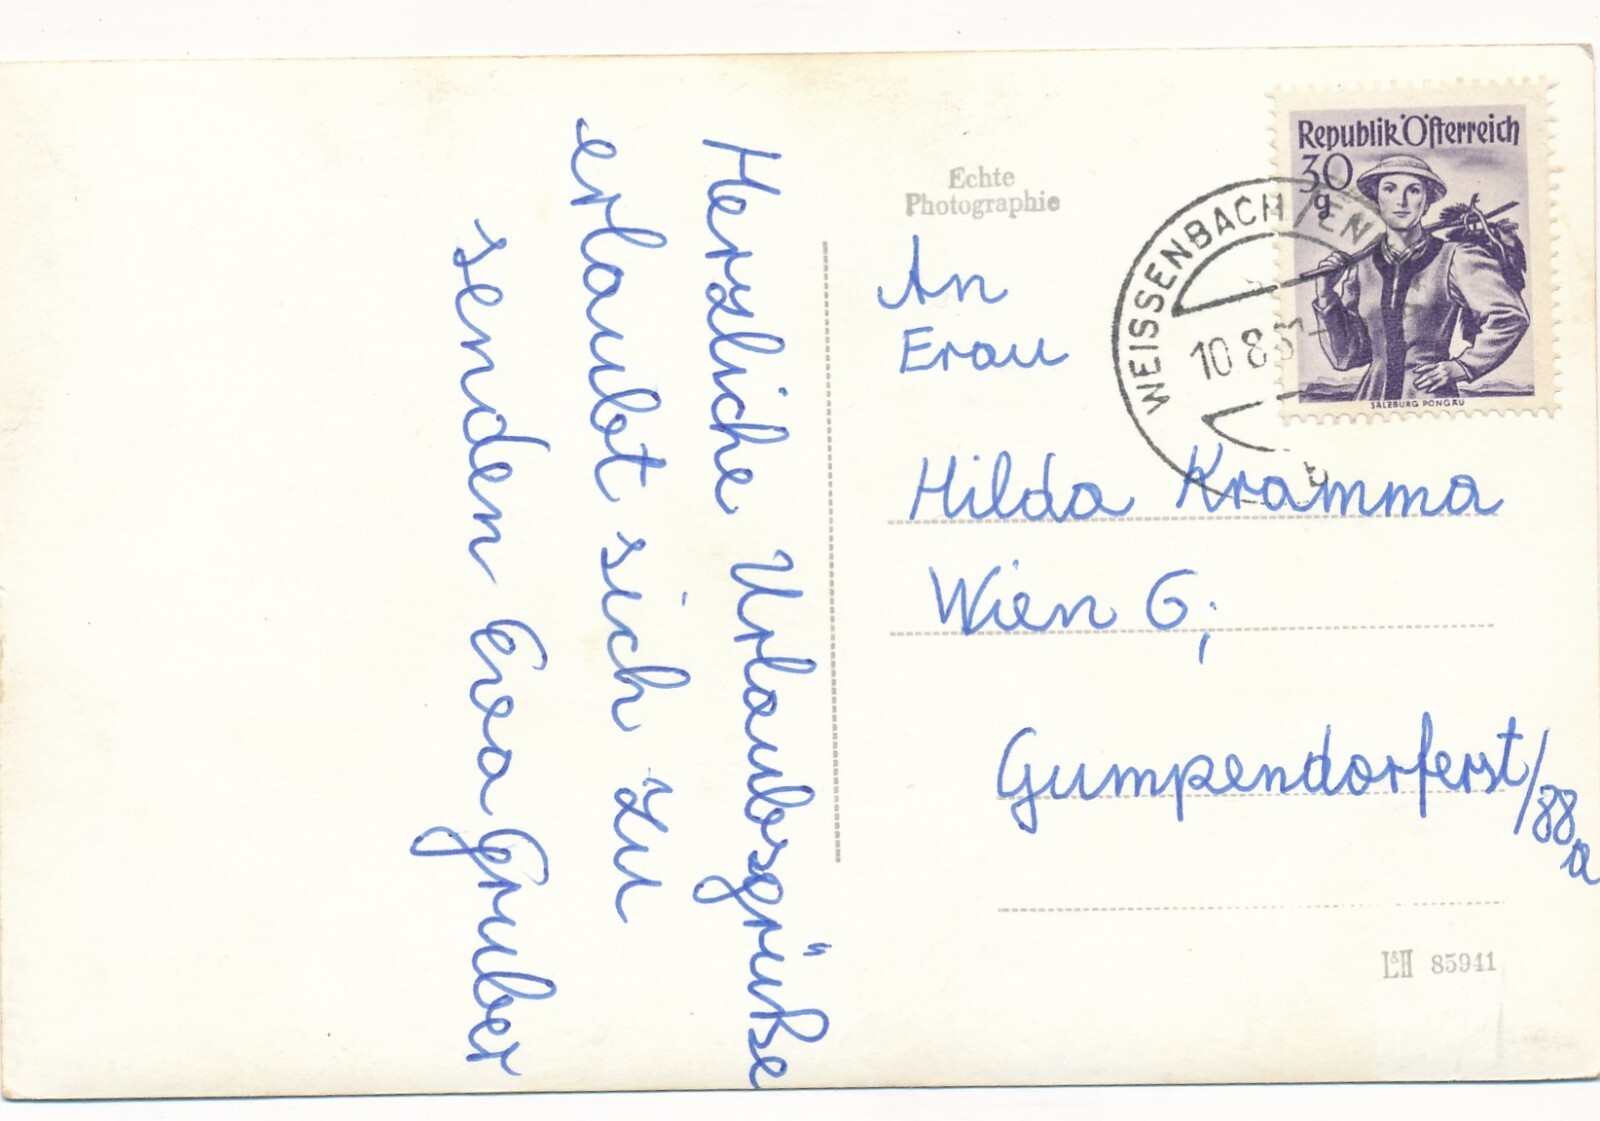 Herzliche Urlaubsgrüße
erlaubt sich zu
senden Eva Gruber
Echte
Photographie
An
Frau
Hilda Kramma
Wien 6,
Gumpendorferst/88a
Republik Österreich
30
g
SALZBURG PONGAU
WEISSENBACH
10.8.5
b
L&H 85941